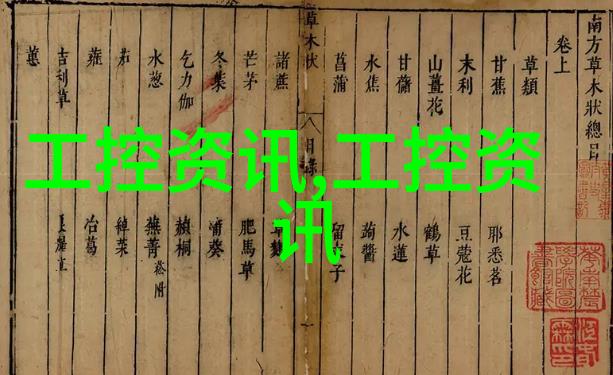 南方草木狀總目
卷上
草類
甘蕉 耶悉茗
末利 豆蔻花
山薑花 鶴草
甘藷 水蓮
水蕉 蒟醬
菖蒲 留 子
草木狀 目錄 一
諸蔗 草麴
芒茅 肥馬草
冬葉 蒲葵
乞力伽 赬桐
水葱 蕪菁 菘附
茄 綽菜
蕹 冶葛
吉利草
蕙
工控资讯,工控资
讯